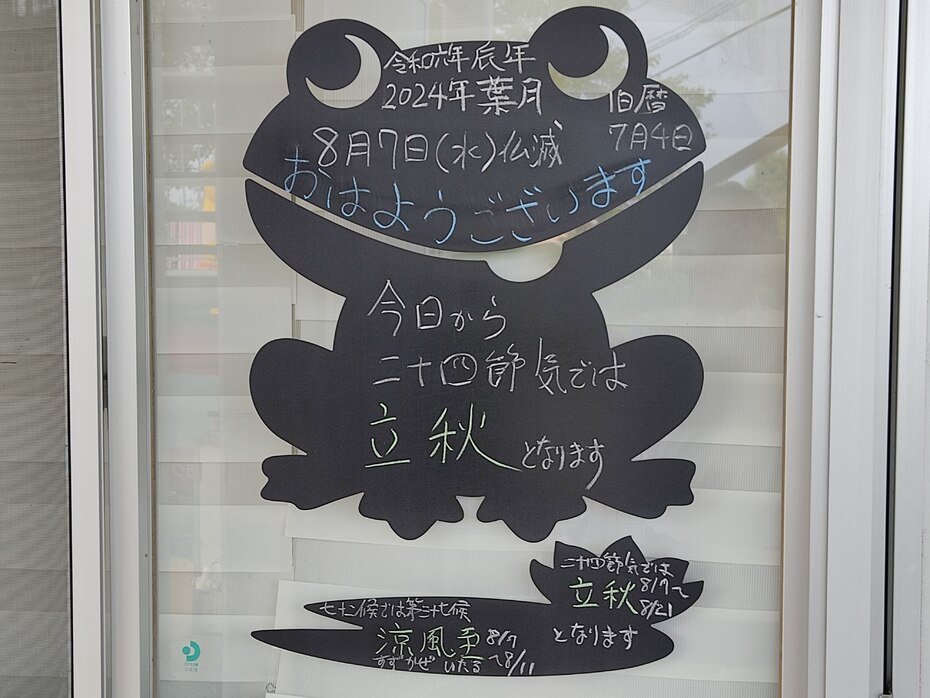 令和六年辰年
2024年葉月
旧暦
7月4日
8月7日(水)仏滅
おはようございます
今日から
二十四節気では
立秋となります
二十四節気では
立秋 8/7〜
8/21
となります
七十二候では第三十七候
涼風至 8/7
すずかぜいたる 〜8/11